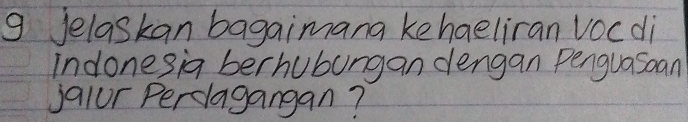 9 Jelaskan bagaimana kehaeliran VOC di
indonesia berhubungan dengan Penguasaan
jalur Perdagangan?